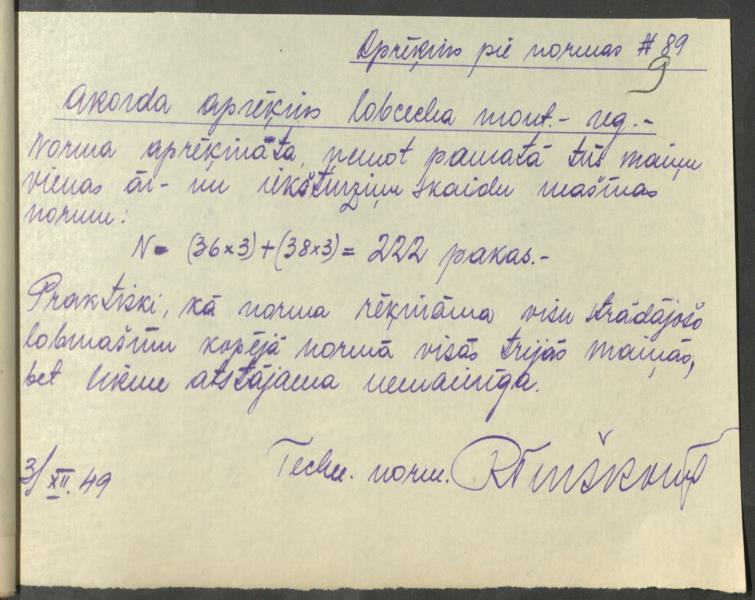 Aprēķins pie normas # 89
9
Akorda aprēķins lobcecha mont.- reg.-
Norma aprēķināta, ņemot pamatā trīs maiņu
vienas ār- un iekšturziņu skaidu mašīnas
normu:
N= (36x3)+(38x3)= 222 pakas.-
Praktiski, kā norma rēķināma visu strādājošo
lobmašīnu kopējā normā visās trijās maiņās,
bet likme atstājama nemainīga.
3/XII.49
Techn. norm.